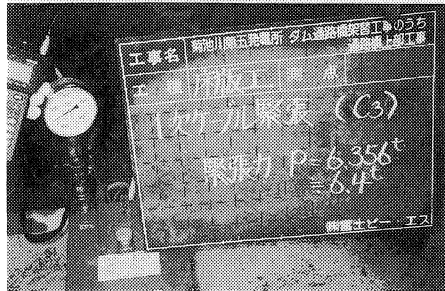 工事名 菊池川第五発電所 ダム通路橋架替工事のうち
通路橋上部工事
工種 床版工 測点
1次ケーブル緊張 (C3)
緊張力 P=6.356t
≒6.4t
㈱富士ピー・エス